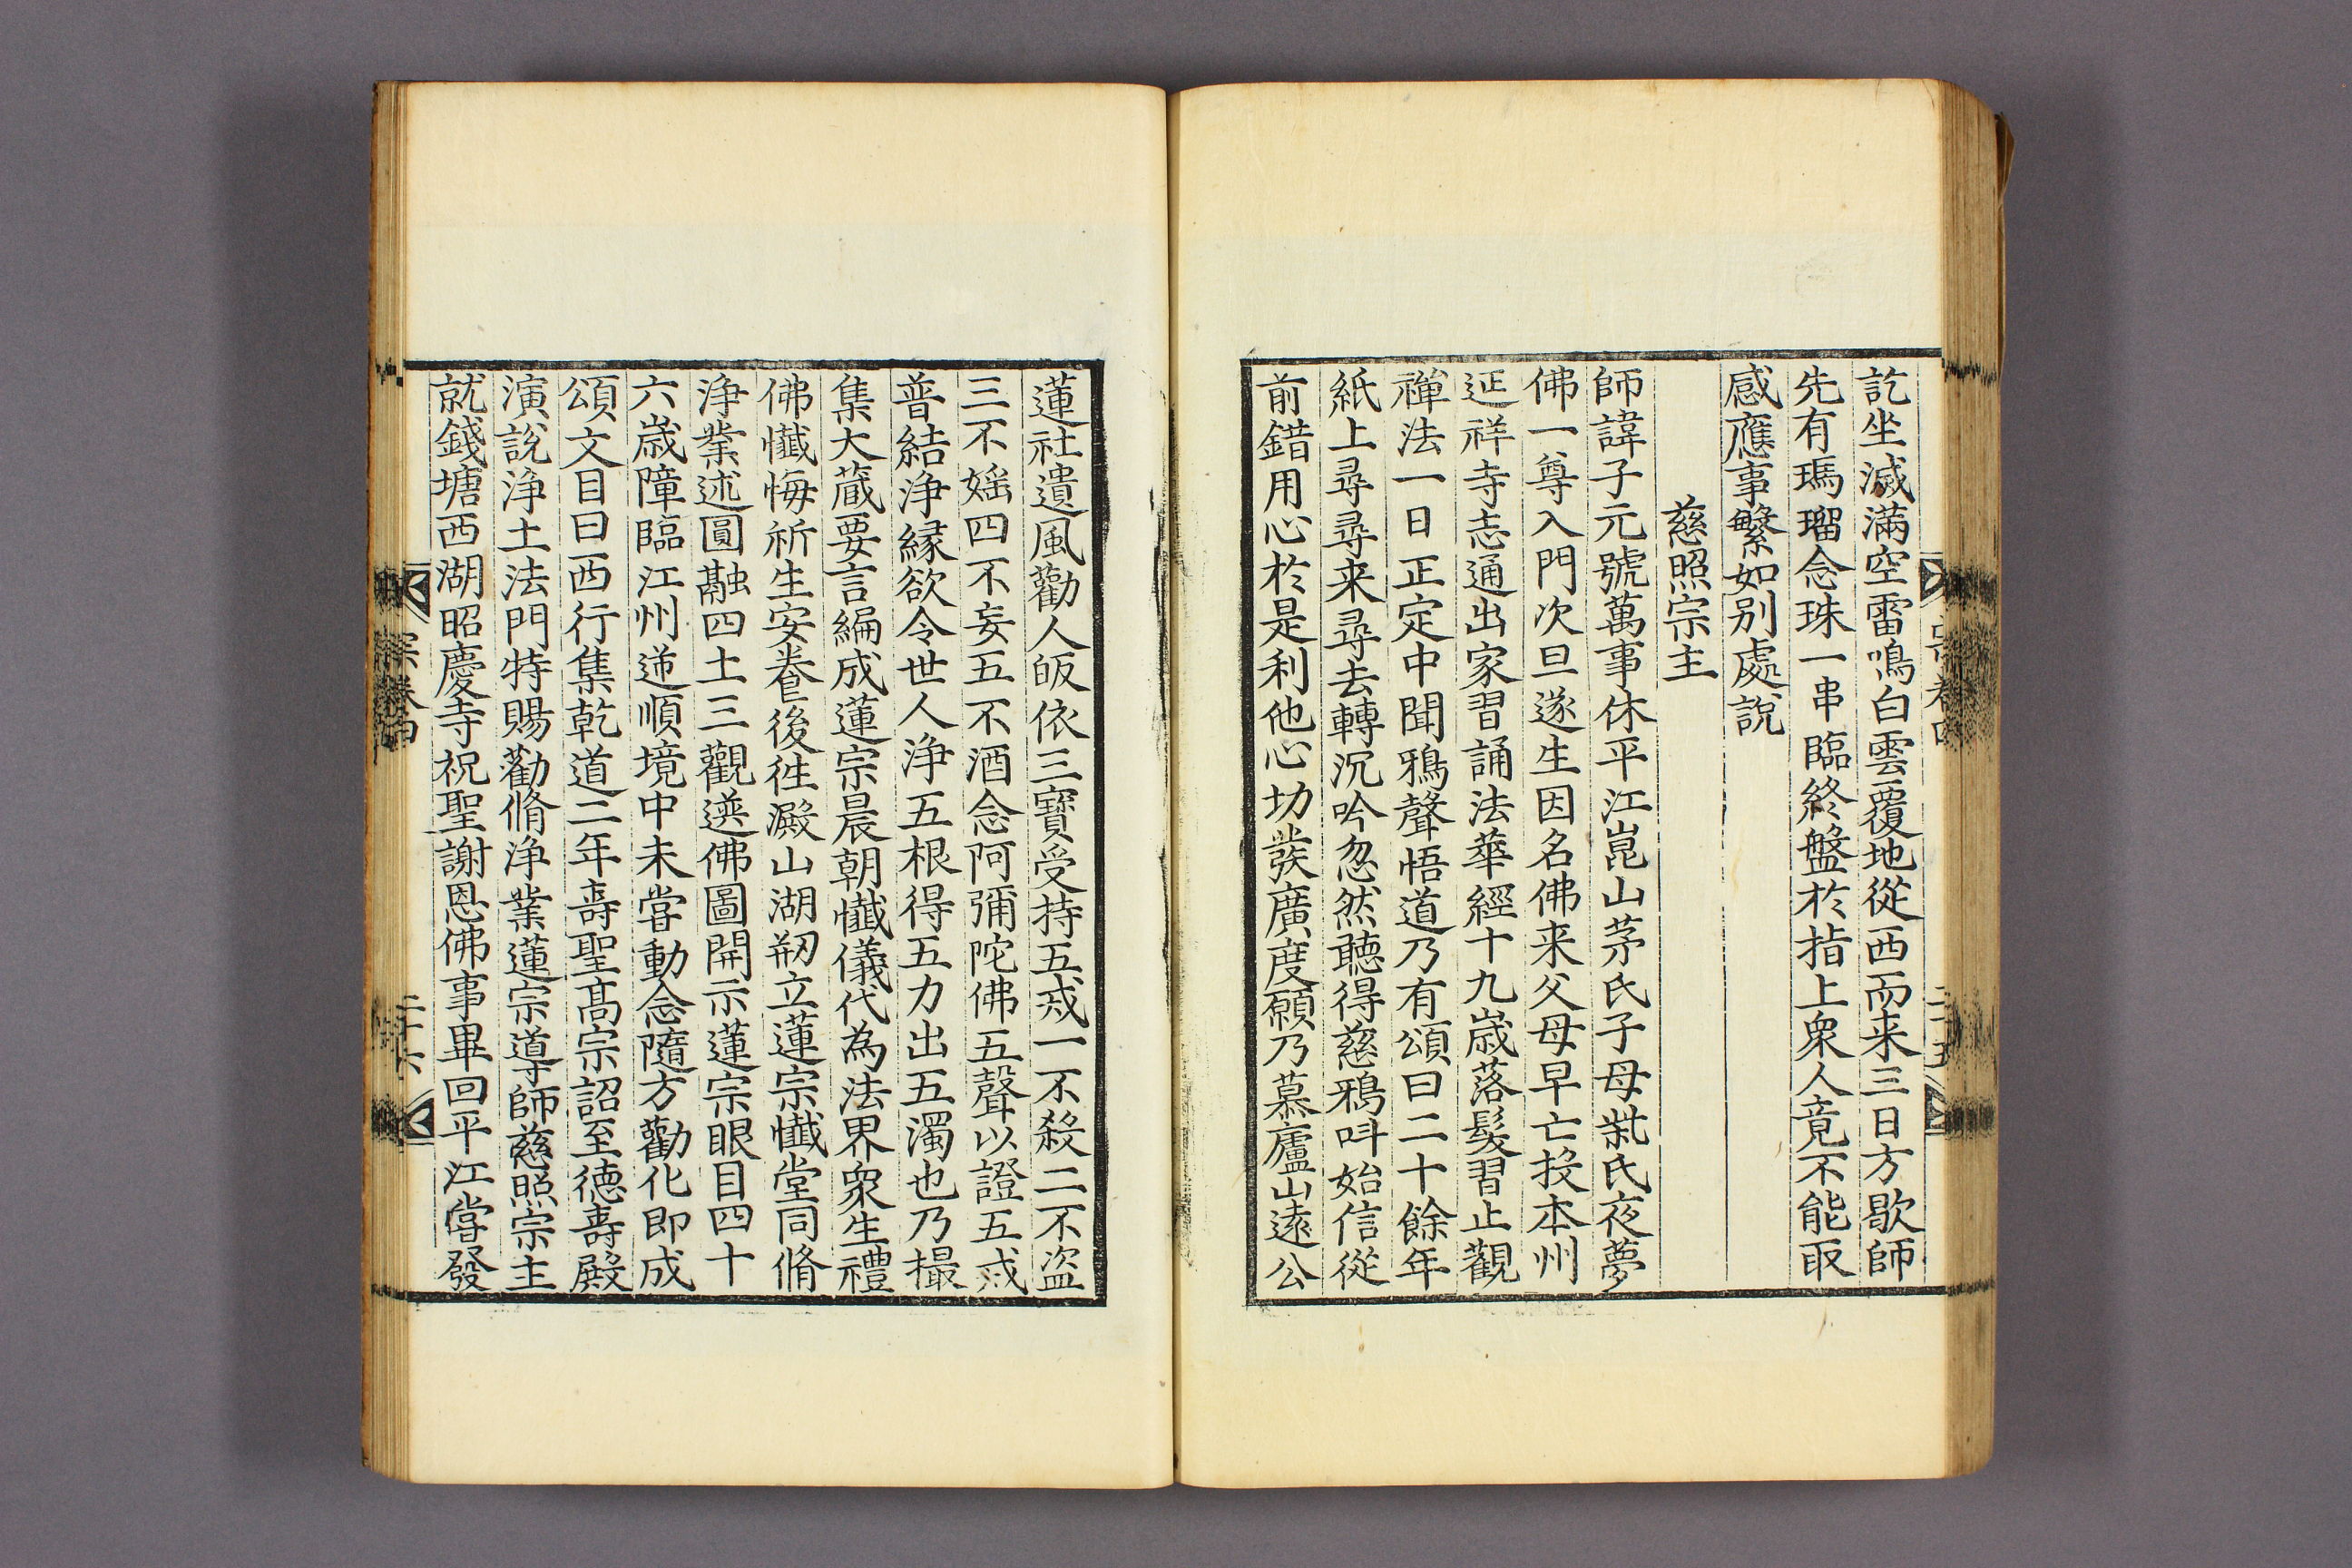 訖坐滅滿空雷鳴白雲覆地從西而来三日方歇師
先有瑪瑠念珠一串臨終盤於指上衆人竟不能取
感應事繁如别處說
慈照宗主
師諱子元號萬事休平江崑山茅氏子母柴氏夜夢
佛一尊入門次旦遂生因名佛来父母早亡投本州
延祥寺志通出家習誦法華經十九歲落髮習止觀
禪法一日正定中聞鴉聲悟道乃有頌曰二十餘年
紙上尋尋来尋去轉沉吟忽然聽得慈鴉呌始信從
前錯用心於是利他心切發廣度願乃慕廬山遠公
蓮社遺風勸人皈依三寶受持五戒一不殺二不盗
三不婬四不妄五不酒念阿彌陀佛五聲以證五戒
普結淨緣欲令世人淨五根得五力出五濁也乃撮
集大藏要言編成蓮宗晨朝懺儀代為法界衆生禮
佛懺悔祈生安養後徃澱山湖剏立蓮宗懺堂同脩
淨業述圓融四土三觀選佛圖開示蓮宗眼目四十
六歲障臨江州逆順境中未甞動念隨方勸化即成
頌文目曰西行集乾道二年壽聖髙宗詔至德壽殿
演說淨土法門特賜勸脩淨業蓮宗導師慈照宗主
就錢塘西湖昭慶寺祝聖謝恩佛事畢回平江甞發
宗卷四
二十六